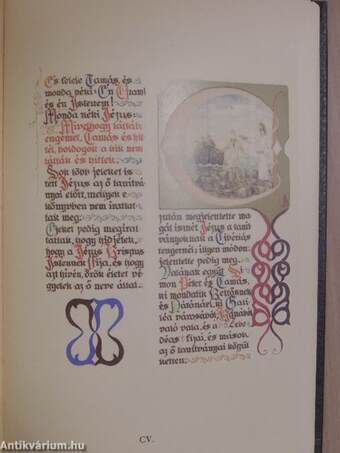 És felele Tamás, és
monda néki: Én Uram!
és én Istenem!
Monda néki Jézus:
Mivelhogy láttál
engemet, Tamás és hit-
tél, boldogok a kik nem
láttak és hittek.
Sok több jeleket is
tett Jézus az ő tanítvá-
nyai előtt, melyek e
könyvben nem írattat-
tak meg.
Ezeket pedig megírat-
tattak, hogy higyjétek,
hogy a Jézus Krisztus
Istennek fija, és hogy
azt hivén, örök életet vé-
gyetek az ő neve által.
pután megjelentette ma-
gát ismét Jézus a taní-
tványoknak a Tibériás
tengerénél; ugyen módon
jelentette pedig meg.
Valának együtt Si-
mon Péter és Tamás,
ki mondatik Kettősnek
és Nátánáel, ki Gali-
lea városából, Kánává
való vala, és a Zebe-
deus fijai, és mások
az ő tanítványai közül
ketten.
CV.
Antikvárium.hu
Antikvárium.hu